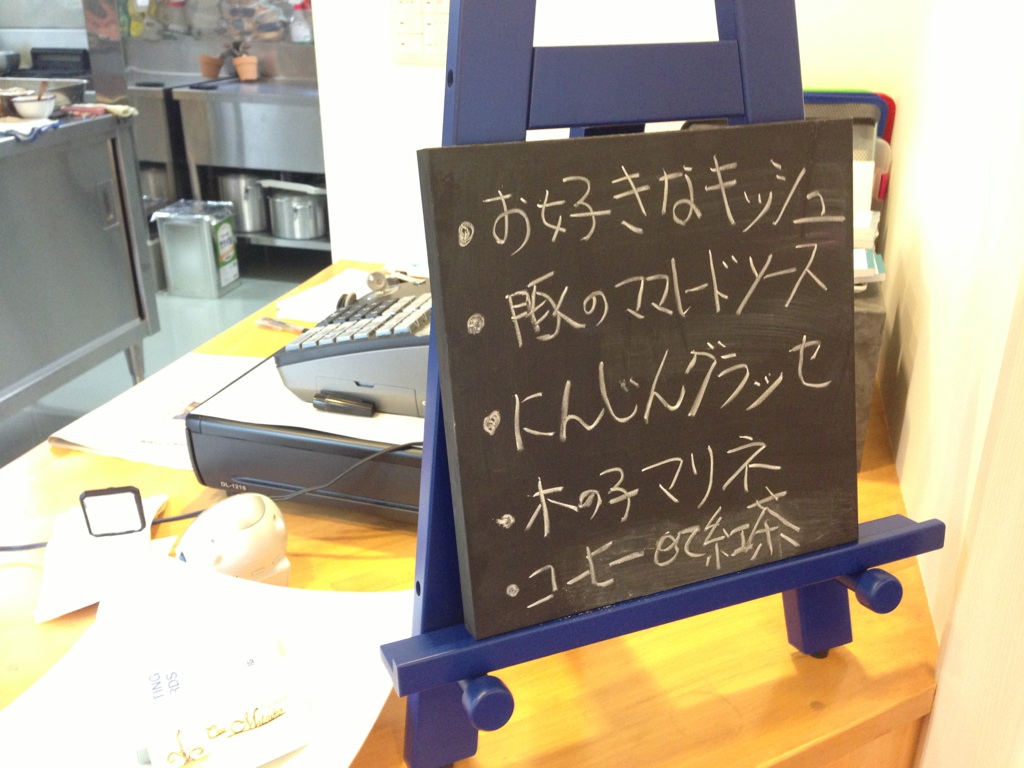 ・お好きなキッシュ
・豚のママレードソース
・にんじんグラッセ
・木の子マリネ
・コーヒーor紅茶
DL-1218